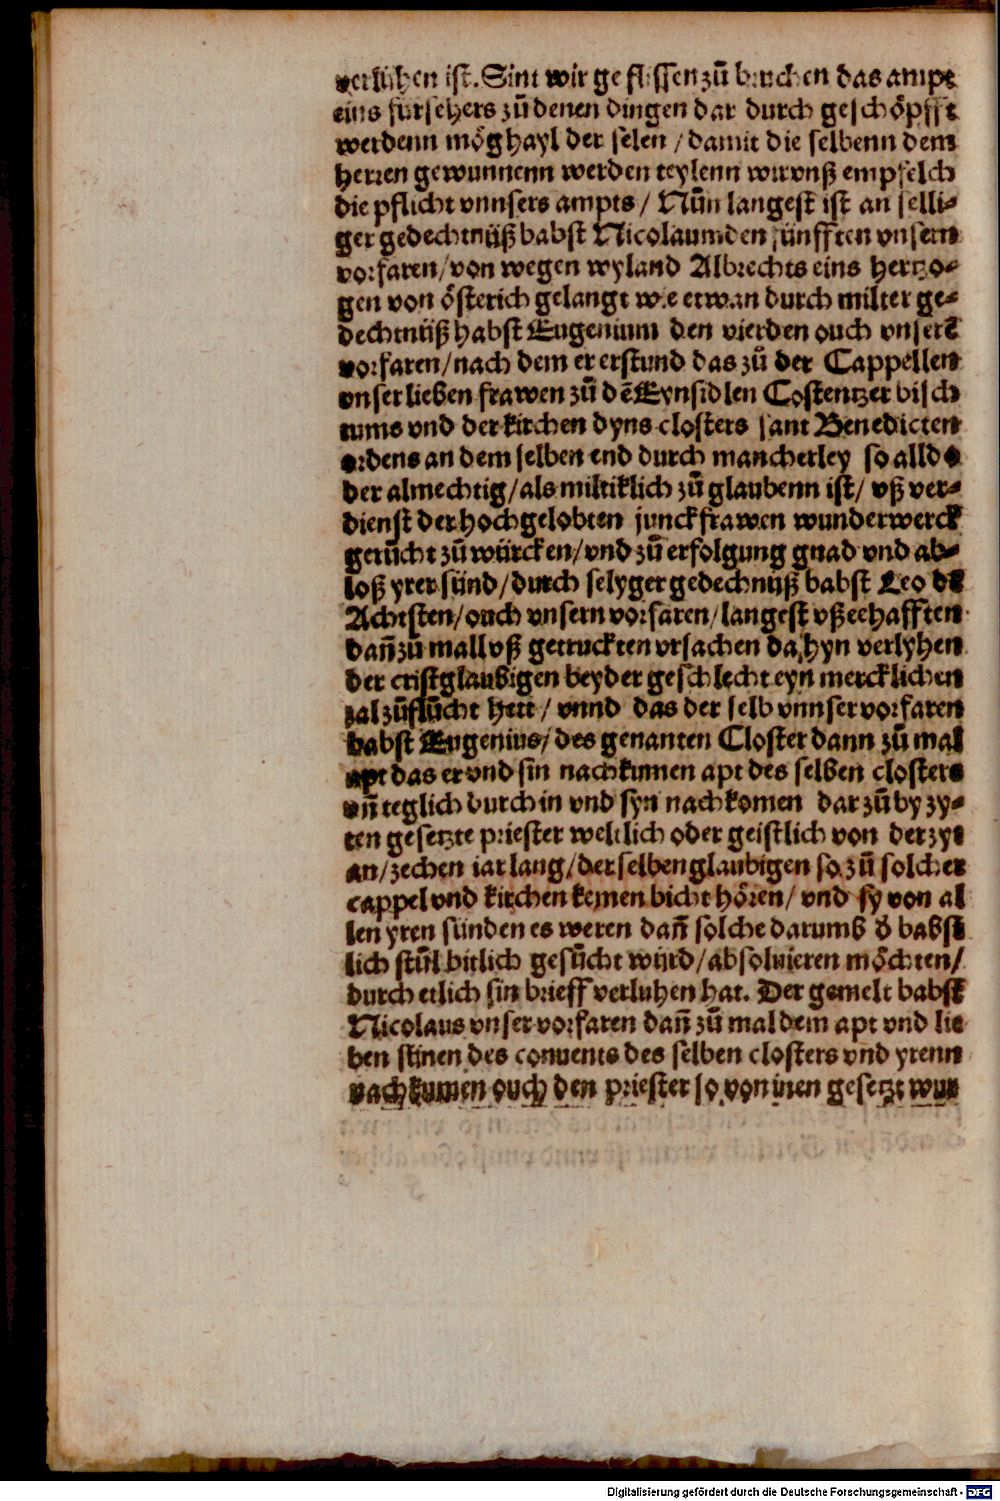 verlühen ist. Sint wir geflissen zů bruchen das ampt
eins fürsehers zů denen dingen dar durch geschöpfft
werdenn mög hayl der selen / damit die selbenn dem
herren gewunnenn werden teylenn wir vnß empfelch
die pflicht vnnsers ampts / Nůn langest ist an selli⸗
ger gedechtnüß babst Nicolaum den fünfften vnsern
vorfaren / von wegen wyland Albrechts eins hertzo⸗
gen von österich gelangt wie etwan durch milter ge⸗
dechtnüß babst Eugenium den vierden ouch vnserē
vorfaren / nach dem er erstund das zů der Cappellen
vnser lieben frawen zů dē Eynsidlen Costentzer bisch
tums vnd der kirchen dyns closters sant Benedicten
ordens an dem selben end durch mancherley so alldo
der almechtig / als miltiklich zů glaubenn ist / vß ver⸗
dienst der hochgelobten junckfrawen wunderwerck
gerůcht zů würcken / vnd zů erfolgung gnad vnd ab⸗
loß yrer sünd / durch selyger gedechnüß babst Leo dē
Achtsten / ouch vnsern vorfaren / langest vß eehafften
dañ zů mall vß getruckten vrsachen da hyn verlyhen
der cristglaubigen beyder geschlecht eyn mercklichen
zal zůflůcht hett / vnnd das der selb vnnser vorfaren
babst Eugenius / des genanten Closter dann zů mal
apt das er vnd sin nachkumen apt des selben closters
vñ teglich durch in vnd syn nachkomen dar zů by zy⸗
ten gesetzte priester weltlich oder geistlich von der zyt
an / zechen iar lang / der selben glaubigen so zů solcher
cappel vnd kirchen kemen bicht hören / vnd sy von al
len yren sünden es weren dañ solche darumb d babst
lich stůl bitlich gesůcht würd / absoluieren möchten /
durch etlich sin brieff verluhen hat. Der gemelt babst
Nicolaus vnser vorfaren dañ zů mal dem apt vnd lie
ben stinen des conuents des selben closters vnd yrenn
nachkumen ouch den priester so von inen gesetzt wur
Digitalisierung gefördert durch die Deutsche Forschungsgemeinschaft - DFG